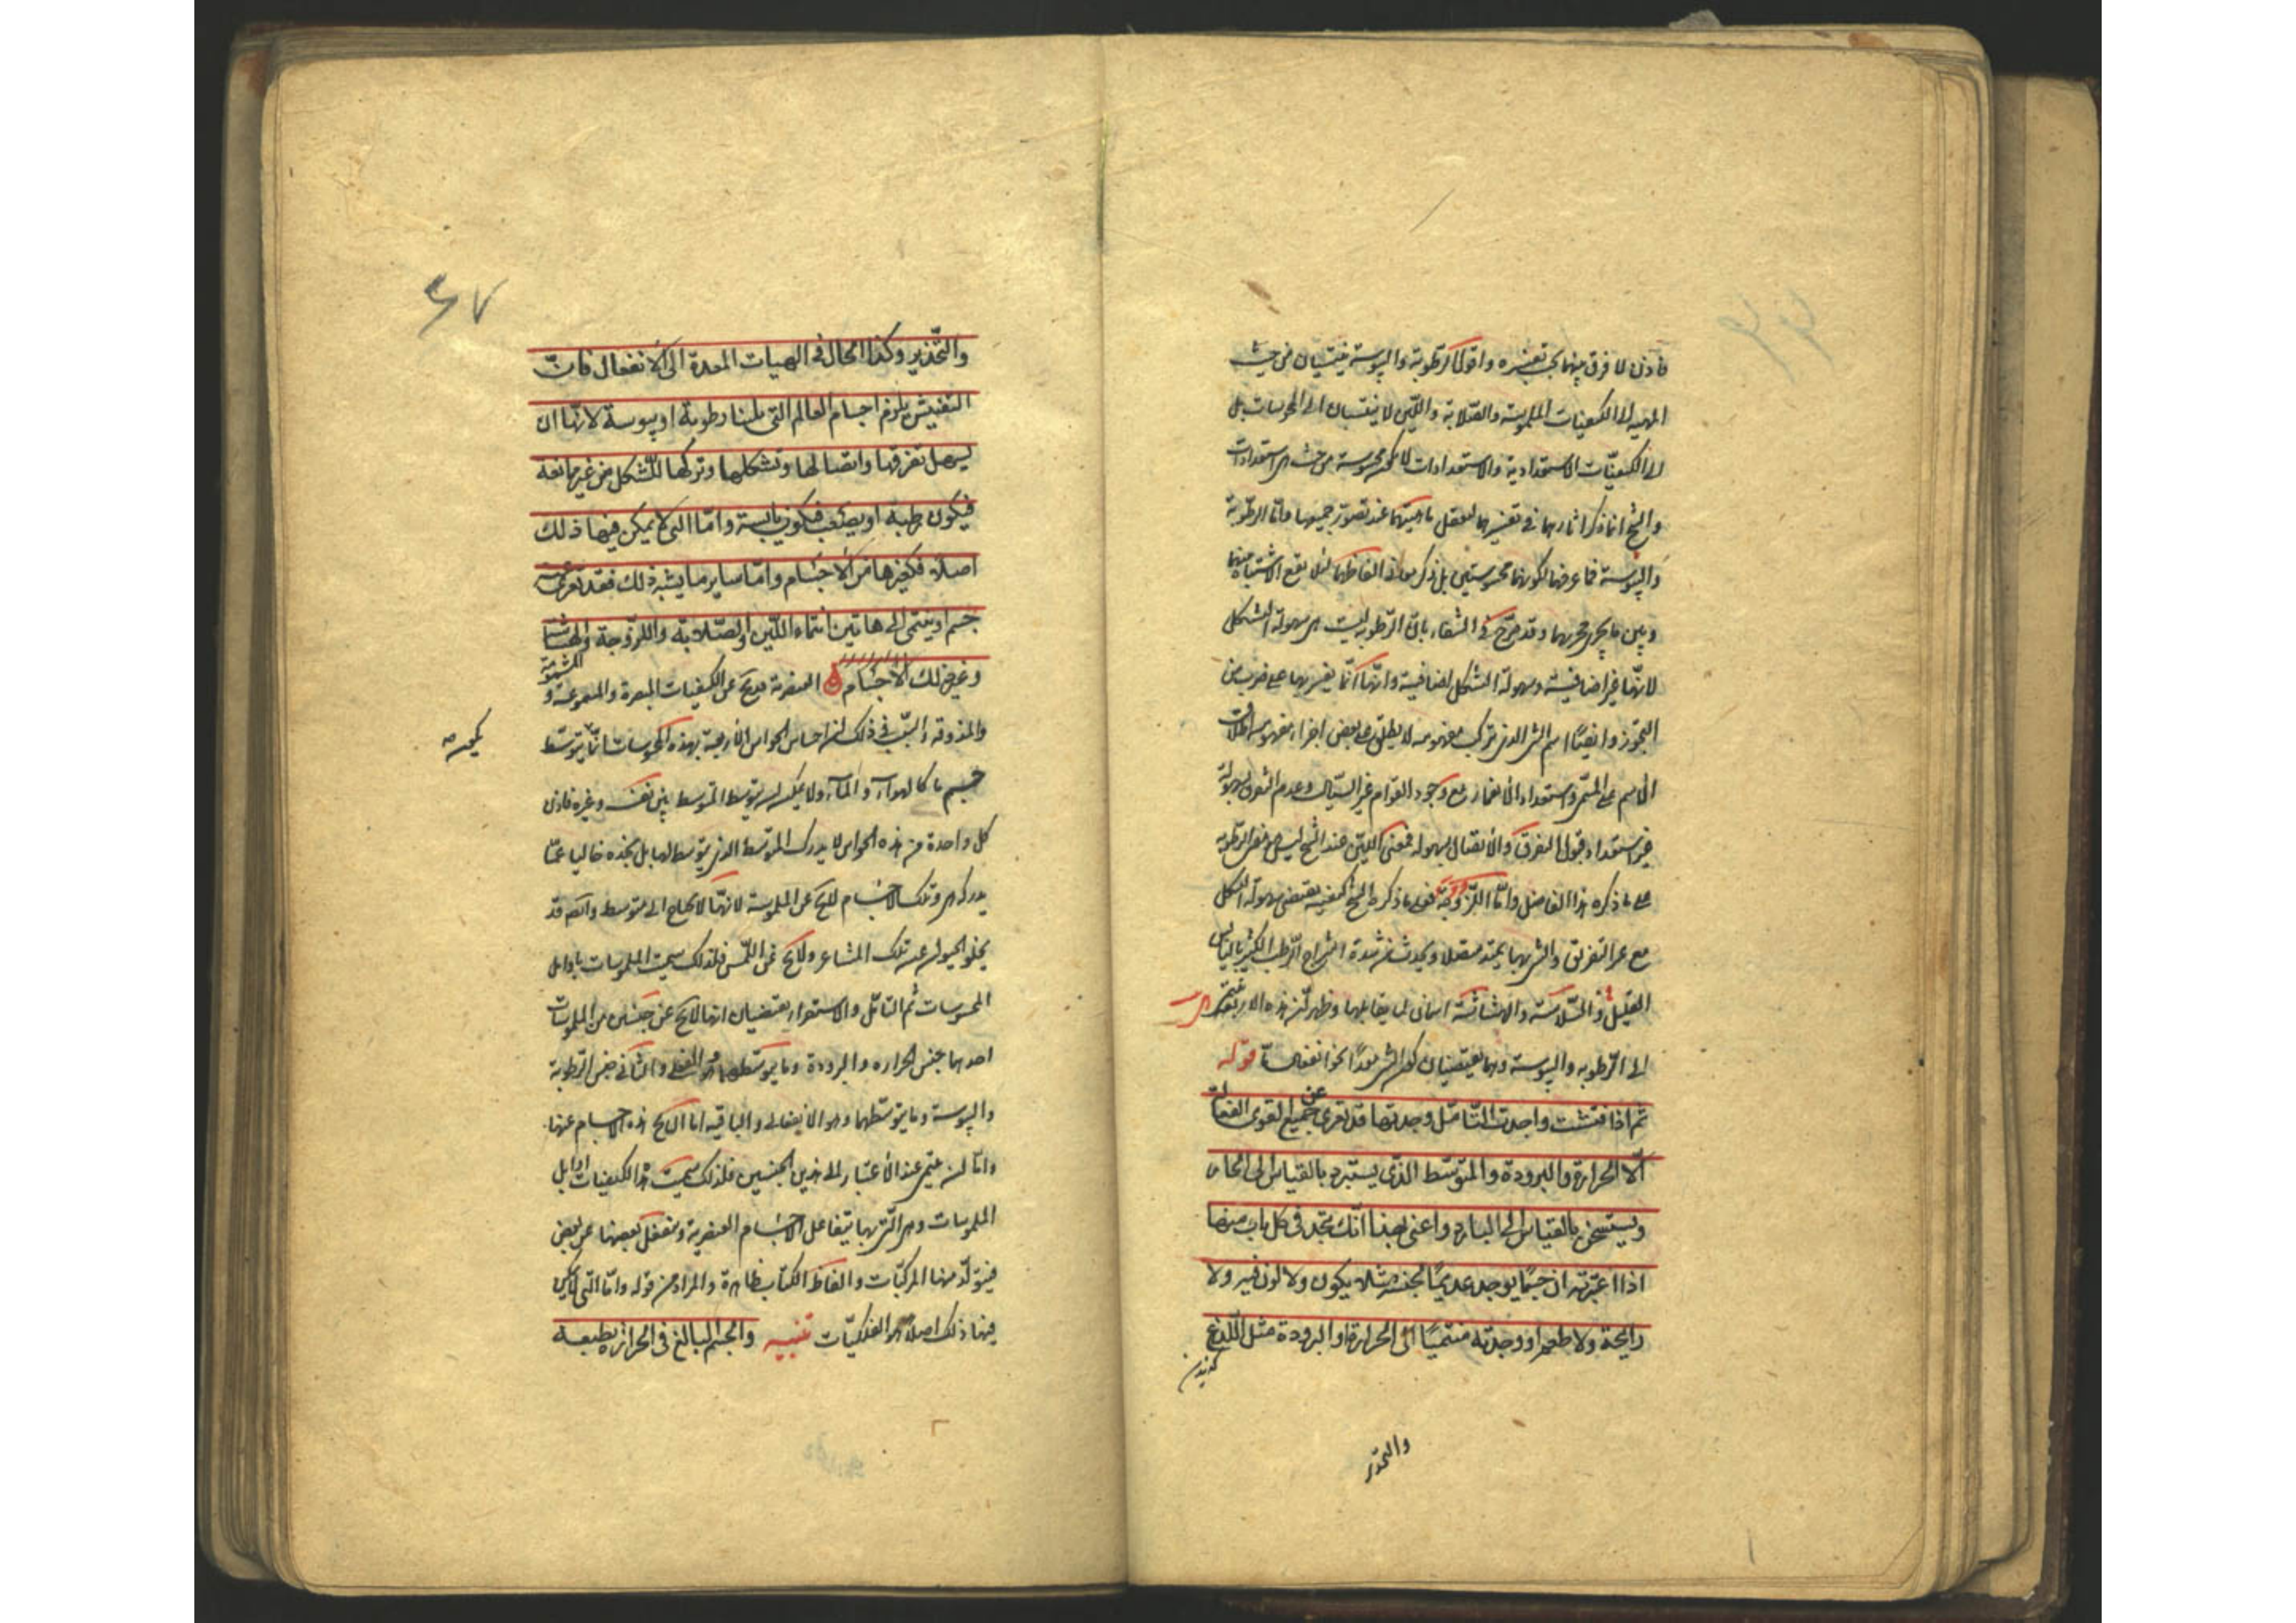 فاذن لا فرق بينهما بحسب تفسيره واقول الرطوبة واليبوسة ينتسبان من حيث
المهية الى الكيفيات الملموسة والصلابة واللين لا ينتسبان الى المحسوسات بل
الى الكيفيات الاستعدادية والاستعدادات لا تكون محسوسة من حيث هي استعدادات
والشيخ انما ذكر اثارهما في تفسيرهما لتعقل ماهيتهما عند تصور جميعها واما الرطوبة
واليبوسة فما عرفهما لكونهما محسوستين بل ذكر معاني الفاظهما لئلا يقع الاشتباه بينهما
وبين ما يجري مجريهما وقد صرح في الشفاء بان الرطوبة ليست هي سهولة التشكل
لانها غير اضافية وسهولة التشكل اضافية وانها انما يفسر بها على ضرب من
التجوز وايضا اسم الشئ الذي تركب مفهومه لا يطلق على بعض اجزاء مفهومه اطلاق
الاسم على المسمى واستعداد الانغماز مع وجود القوام غير السيال وعدم التفرق بسهولة
غير استعداد قبول التفرق والاتصال بسهولة فمعنى اللين عند الشيخ ليس هو معنى الرطوبة
على ما ذكره هذا الفاضل واما اللزوجة فهي ما ذكر الشيخ كيفية يقتضي سهولة التشكل
مع عسر التفريق والشئ بها يمتد متصلا ويحدث من شدة امتزاج الرطب الكثير باليابس
القليل والسلاسة والهشاشة اسمان لما يقابلها وظهر ان هذه الاربعة
الى الرطوبة واليبوسة وهما يقتضيان كون الشئ معدا نحو انفعال ما قوله
ثم اذا فتشت واجدت التامل وجدتها قد تعرى عن جميع القوى الفعالة
الا الحرارة والبرودة والمتوسط الذي يستبرد بالقياس الى الحار
ويستسخن بالقياس الى البارد واعنى بهذا انك تجد في كل باب منها
اذا اعتبرته ان جسما يوجد عديما لجنسه مثلا يكون ولا لون فيه ولا
رايحة ولا طعم او وجدته منتميا الى الحرارة او البرودة مثل اللدغ
والتخدير
٤٧
والتخدير وكذا الحال في الهيات المعدة الى الانفعال فان
التفتيش يلزم اجسام العالم التي تلينا رطوبة او يبوسة لانها ان
يسهل تفرقها واتصالها وتشكلها وتركها للتشكل من غير ممانعة
فيكون رطبه او يصعب فيكون يابسة واما التي لا يمكن فيها ذلك
اصلا فكغيرها من الاجسام واما ساير ما يشبه ذلك فقد تعرى عنه
جسم او ينتمي الى هاتين انتماء اللين والصلابة واللزوجة والهشاشة
وغير ذلك الاجسام العنصرية قد يخ عن الكيفيات المبصرة والمسموعة والمشمومة
والمذوقة والسبب في ذلك ان احساس الحواس الاربعة بهذه المحسوسات انما يتوسط
جسم ما كالهواء والماء ولا يمكن ان يتوسط المتوسط بين نفسه وغيره فاذن
كل واحدة من هذه الحواس لا يدرك المتوسط الذي يتوسط لها بل تجده خاليا عما
يدركه هي وتلك الاجسام لا يخ عن الملموسة لانها لا تحتاج الى متوسط وايضا قد
يخلو الحيوان عن تلك المشاعر ولا يخ عن اللمس فلذلك سميت الملموسات باوايل
المحسوسات ثم التامل والاستقراء يقتضيان انها لا يخ عن جنسين من الملموسات
احدهما جنس الحرارة والبرودة وما يتوسطهما وهو الفعلى والثاني جنس الرطوبة
واليبوسة وما يتوسطهما وهو الانفعالى والباقية اما ان يخ هذه الاجسام عنها
واما ان ينتمى عند الاعتبار الى هذين الجنسين فلذلك سميت هذه الكيفيات اوايل
الملموسات وهي التي بها يتفاعل الاجسام العنصرية وينفعل بعضها عن بعض
فيتولد منها المركبات والفاظ الكتاب ظاهرة والمراد من قوله واما التي لا يمكن
فيها ذلك اصلا هو الفلكيات تنبيه والجسم البالغ في الحرارة بطبعه